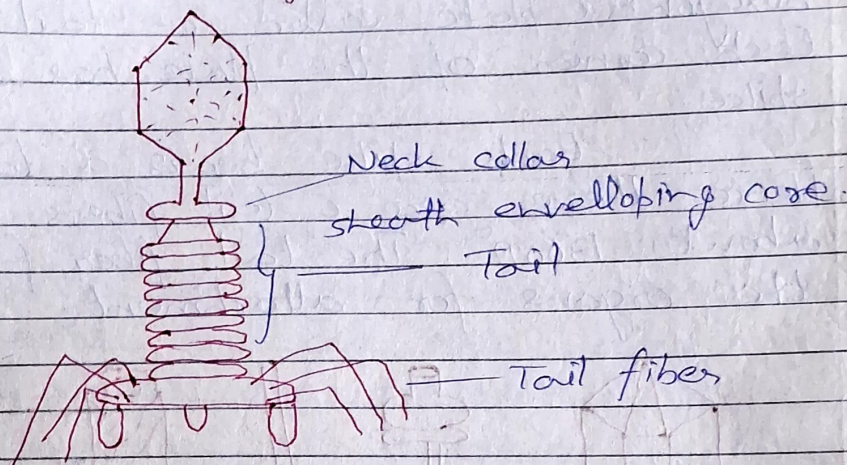 Neck collar
sheath envelloping core.
Tail
Tail fiber